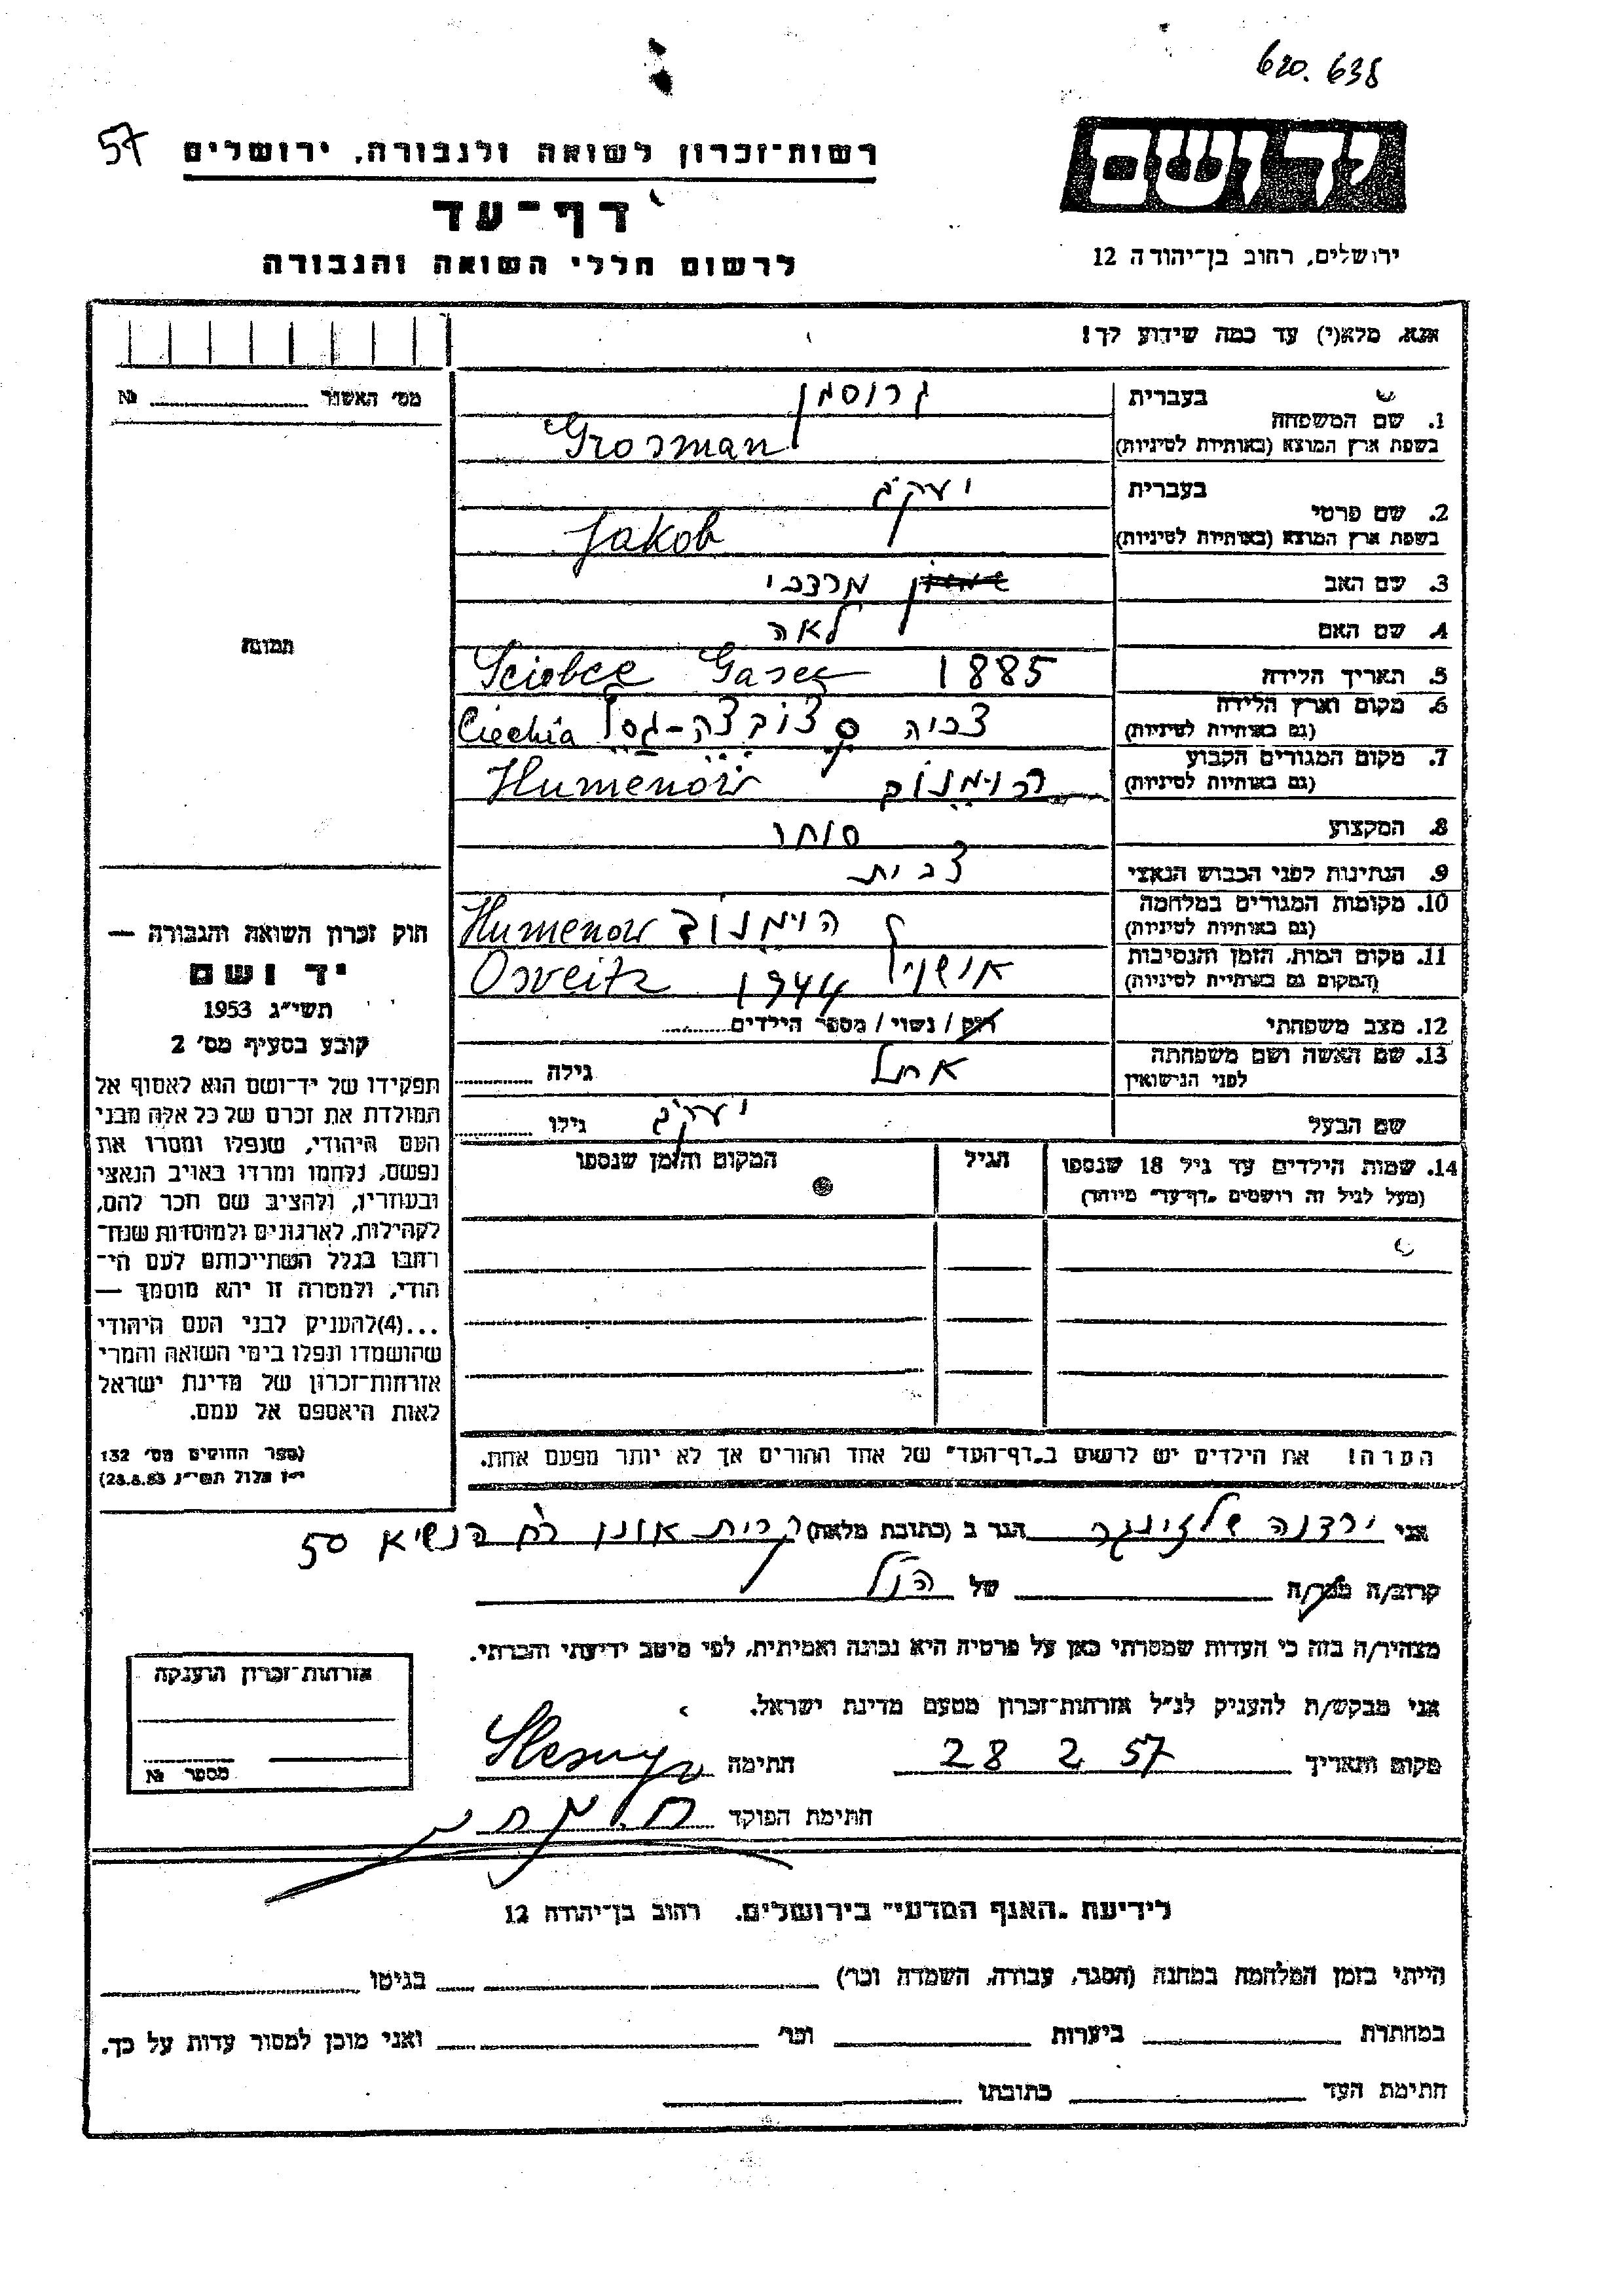 620.638
57
יד ושם
רשות־זכרון לשואה ולגבורה, ירושלים
דף־עד
לרשום חללי השואה והגבורה
ירושלים, רחוב בן־יהודה 12
אנא, מלא(י) עד כמה שידוע לך!
מס׳ האשור № 
1. שם המשפחה
בעברית גרוסמן
בשפת ארץ המוצא (באותיות לטיניות) Grosman
2. שם פרטי
בעברית יעקב
בשפת ארץ המוצא (באותיות לטיניות) Jakob
3. שם האב מרדכי
4. שם האם לאה
5. תאריך הלידה 1885
Sciobce Gasee
6. מקום וארץ הלידה
(גם באותיות לטיניות) צ׳כיה סצובצה-גסל Ciechia
7. מקום המגורים הקבוע
(גם באותיות לטיניות) הוימנוב Humenow
8. המקצוע סוחר
9. הנתינות לפני הכבוש הנאצי צ׳כית
10. מקומות המגורים במלחמה
(גם באותיות לטיניות) הוימנוב Humenow
11. מקום המות, הזמן והנסיבות
(המקום גם באותיות לטיניות) אושויץ 1944 Osveitz
12. מצב משפחתי רוק / נשוי / מספר הילדים
13. שם האשה ושם משפחתה
לפני הנישואין אתל גילה
שם הבעל יעקב גילו
14. שמות הילדים עד גיל 18 שנספו
(מעל לגיל זה רושמים „דף־עד״ מיוחד)
הגיל
המקום והזמן שנספו
הערה! את הילדים יש לרשום ב„דף־העד״ של אחד ההורים אך לא יותר מפעם אחת.
תמונה
חוק זכרון השואה והגבורה —
יד ושם
תשי״ג 1953
קובע בסעיף מס׳ 2
תפקידו של יד־ושם הוא לאסוף אל
המולדת את זכרם של כל אלה מבני
העם היהודי, שנפלו ומסרו את
נפשם, נלחמו ומרדו באויב הנאצי
ובעוזריו, ולהציב שם וזכר להם,
לקהילות, לארגונים ולמוסדות שנח־
רחבו בגלל השתייכותם לעם הי־
הודי, ולמטרה זו יהא מוסמך —
...(4)להעניק לבני העם היהודי
שהושמדו ונפלו בימי השואה והמרי
אזרחות־זכרון של מדינת ישראל
לאות היאספם אל עמם.
(ספר החוקים מס׳ 132
י״ז אלול תשי״ג 28.8.53)
אני ירדנה שלזינגר הגר ב (כתובת מלאה) קרית אונו רח הנשיא 50
קרוב/ה מכר/ה של הנ״ל
מצהיר/ה בזה כי העדות שמסרתי כאן על פרטיה היא נכונה ואמיתית, לפי מיטב ידיעתי והכרתי.
אני מבקש/ת להעניק לנ״ל אזרחות־זכרון מטעם מדינת ישראל.
מקום ותאריך 28 2 57 חתימה
חתימת הפוקד
אזרחות־זכרון הוענקה
מספר №
לידיעת „האגף המדעי״ בירושלים, רחוב בן־יהודה 12
הייתי בזמן המלחמה במחנה (הסגר, עבודה, השמדה וכר) בגיטו
במחתרת ביערות וכר׳ ואני מוכן למסור עדות על כך.
חתימת העד כתובתו